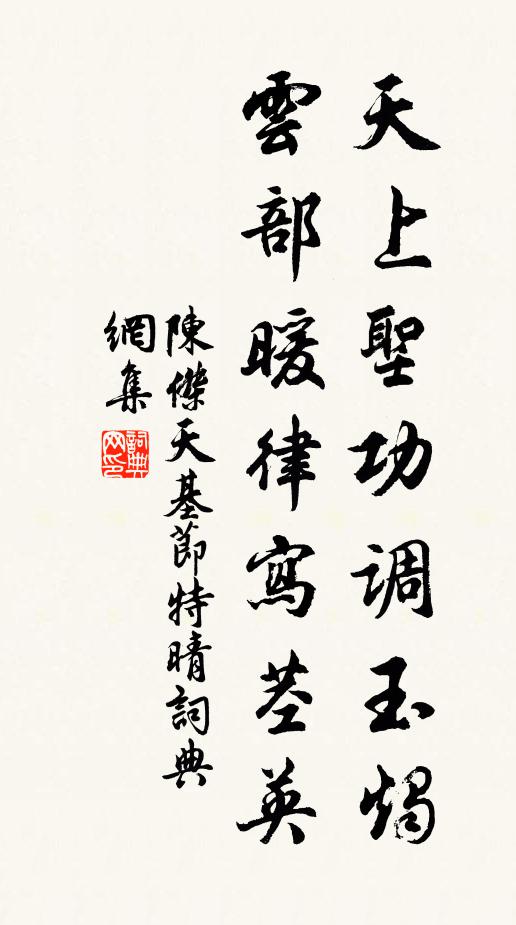 天上聖功調玉燭
雲部暖律寫莖英
陳傑天基節特晴詞典
網集
詞典
网印